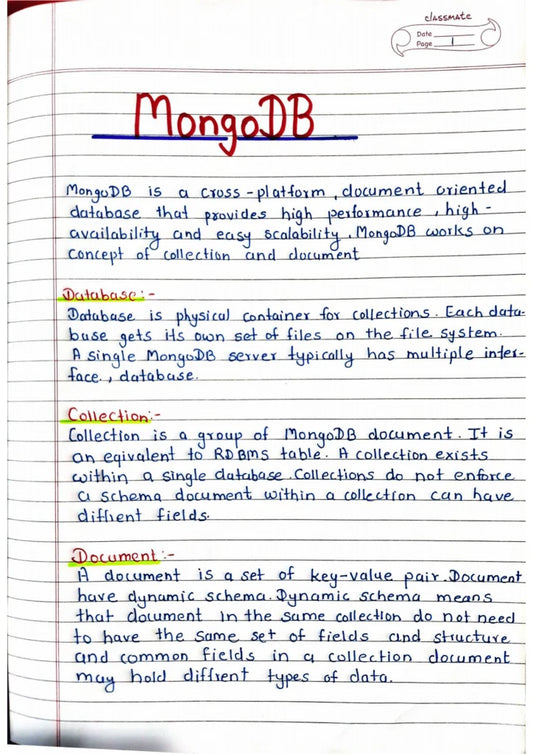 classmate
Date
Page 1
MongoDB
MongoDB is a cross-platform, document oriented
database that provides high performance, high-
availability and easy scalability. MongoDB works on
concept of collection and document
Database:-
Database is physical container for collections. Each data-
base gets its own set of files on the file system.
A single MongoDB server typically has multiple inter-
face., database.
Collection:-
Collection is a group of MongoDB document. It is
an eqivalent to RDBMS table. A collection exists
within a single database. Collections do not enforce
a schema document within a collection can have
diffrent fields.
Document:-
A document is a set of key-value pair. Document
have dynamic schema. Dynamic schema means
that document in the same collection do not need
to have the same set of fields and structure
and common fields in a collection document
may hold diffrent types of data.